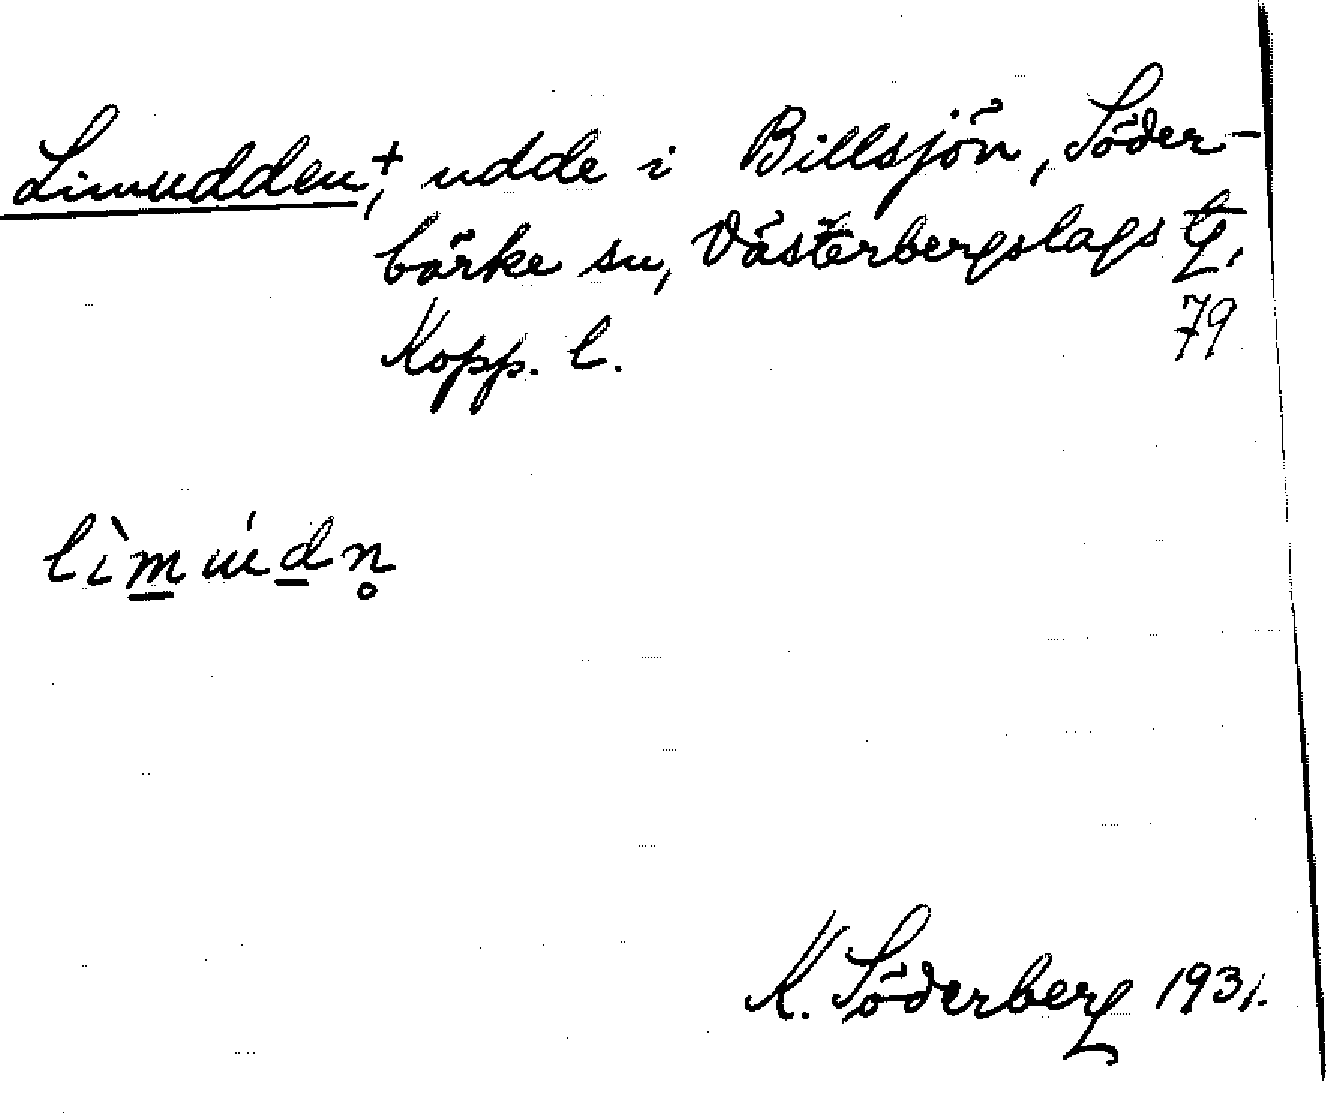 Limudden,+ udde i Billsjön, Söder-
bärke sn, Västerbergslags tg,
Kopp. l. 79
lìm̲úd̲n̥
K. Söderberg 1931.